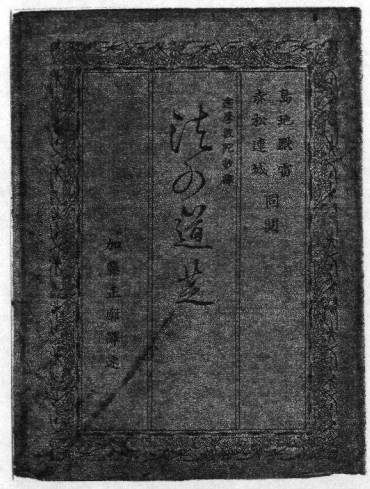 島地默雷
赤松連城
同閲
法の道芝
加藤正廓譯述